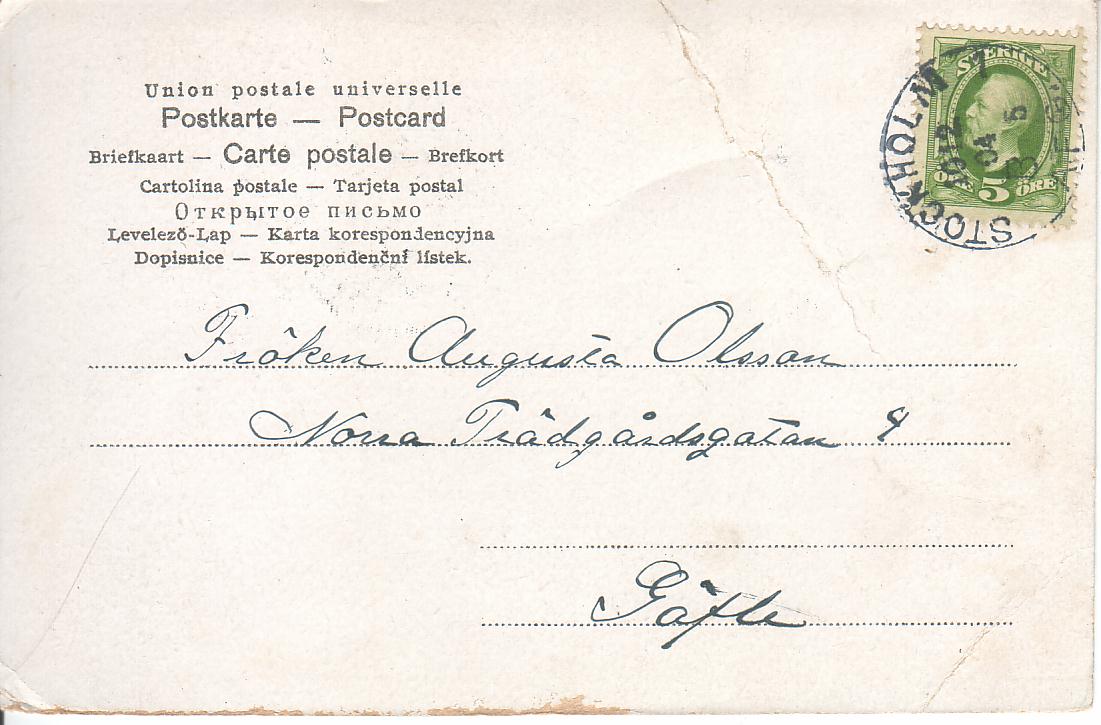 Union postale universelle
Postkarte — Postcard
Briefkaart — Carte postale — Brefkort
Cartolina postale — Tarjeta postal
Открытое письмо
Levelező-Lap — Karta korespondencyjna
Dopisnice — Korespondenční lístek.
SVERIGE
5
ÖRE
ÖRE
STOCKHOLM 1
10 12
04
Fröken Augusta Olsson
Norra Trädgårdsgatan 9
Gäfle